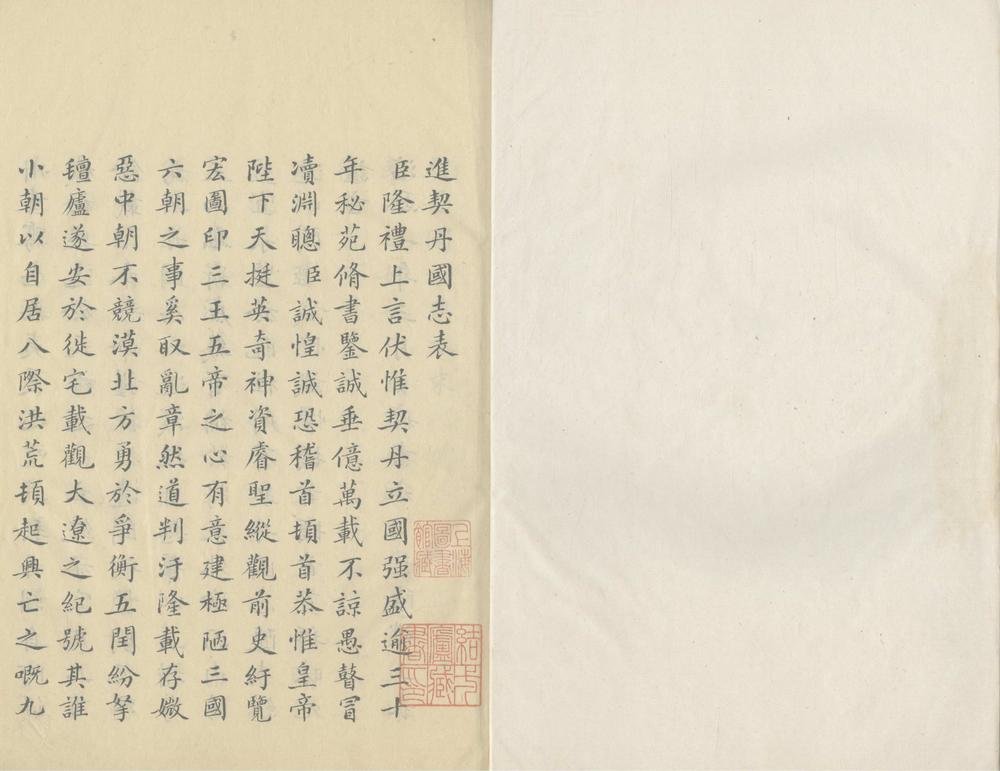 進契丹國志表
臣隆禮上言伏惟契丹立國强盛逾三十
年秘苑脩書鑒誠垂億萬載不諒愚瞽冒
凟淵聰臣誠惶誠恐稽首頓首恭惟皇帝
陛下天挺英奇神資睿聖縱觀前史紆覽
宏圖印三王五帝之心有意建極陋三國
六朝之事奚取亂章然道判汙隆載存媺
惡中朝不競漠北方勇於爭衡五閏紛拏
氊廬遂安於徙宅載觀大遼之紀號其誰
小朝以自居八際洪荒頓起興亡之嘅九
上海圖書館藏
結一廬藏書印